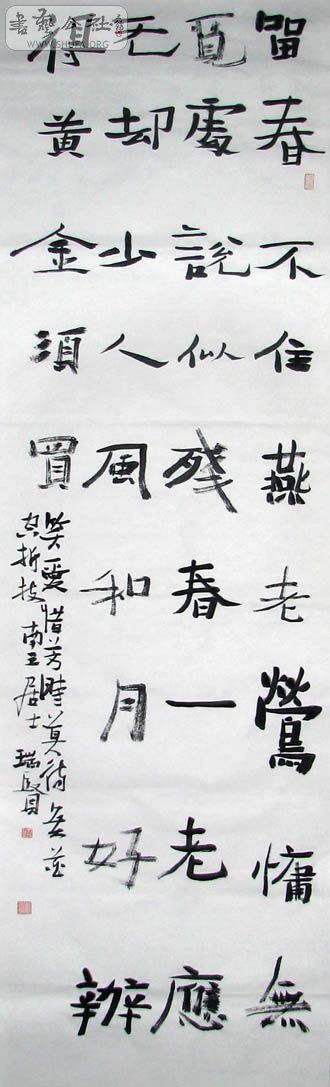 書藝公社
WWW.SHUFA.ORG
留春不住燕老鶯慵無
覓處說似殘春一老應
无却少人風和月好辦
得黃金須買
笑愛惜芳時莫待無花
空折枝 南居士 瑞賢